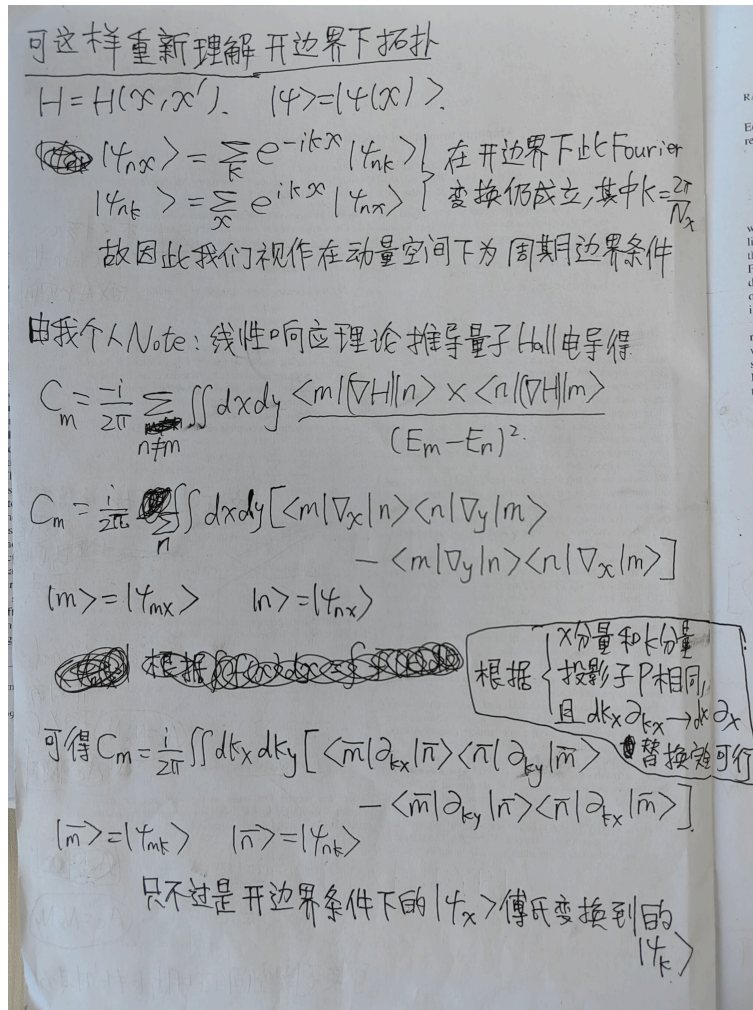 可这样重新理解开边界下拓扑
H = H(x, x'). |ψ>=|ψ(x)>.
|ψnx> = Σk e^{-ikx} |ψnk> } 在开边界下此Fourier
|ψnk> = Σx e^{ikx} |ψnx> } 变换仍成立,其中k=2π/Nx
故因此我们视作在动量空间下为周期边界条件
由我个人Note:线性响应理论推导量子Hall电导得
Cm = -i/2π Σn≠m ∬dxdy <m|(∇H)|n> × <n|(∇H)|m> / (Em-En)².
Cm = i/2π Σn ∬dxdy[<m|∇x|n><n|∇y|m>
- <m|∇y|n><n|∇x|m>]
|m>=|ψmx> |n>=|ψnx>
根据
根据 { x分量和k分量
投影子P相同,
且dkx∂kx→dx∂x
替换可行
可得Cm = i/2π ∬dkxdky[<m̄|∂kx|n̄><n̄|∂ky|m̄>
- <m̄|∂ky|n̄><n̄|∂kx|m̄>]
|m̄>=|ψmk> |n̄>=|ψnk>
只不过是开边界条件下的|ψx>傅氏变换到的
|ψk>